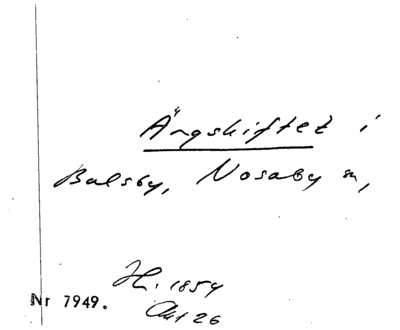 Ängskiftet i
Balsby, Nosaby sn,
H. 1854
Akt 26
Nr 7949.